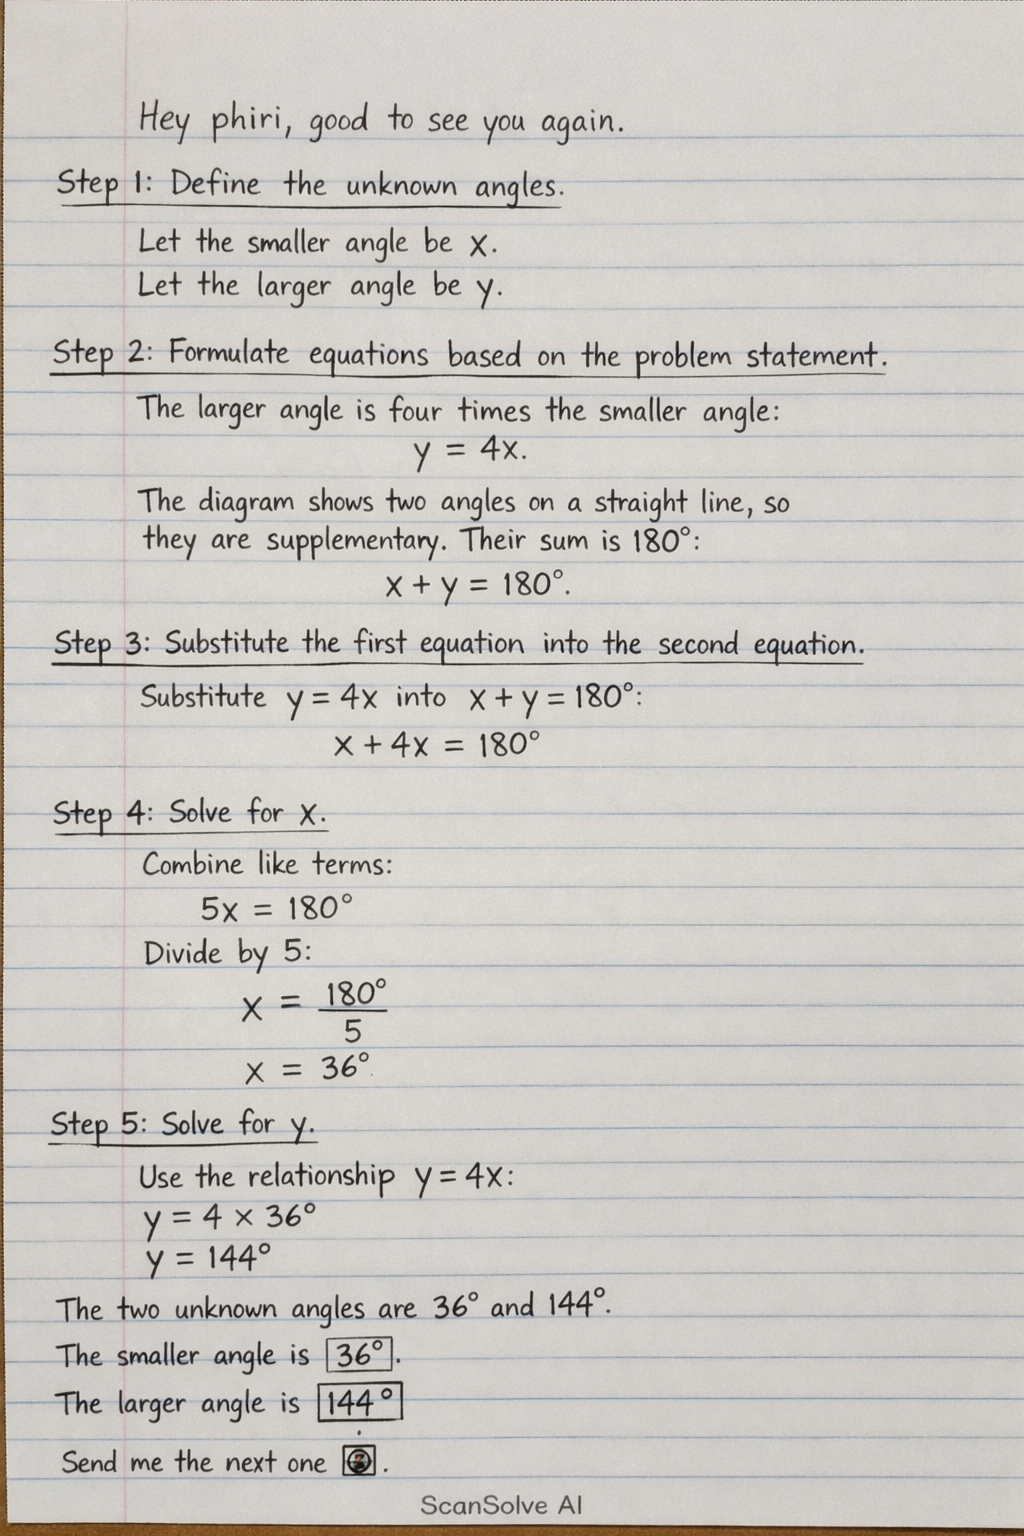 Hey phiri, good to see you again.
Step 1: Define the unknown angles.
Let the smaller angle be x.
Let the larger angle be y.
Step 2: Formulate equations based on the problem statement.
The larger angle is four times the smaller angle:
y = 4x.
The diagram shows two angles on a straight line, so
they are supplementary. Their sum is 180°:
x + y = 180°.
Step 3: Substitute the first equation into the second equation.
Substitute y = 4x into x + y = 180°:
x + 4x = 180°
Step 4: Solve for x.
Combine like terms:
5x = 180°
Divide by 5:
x = 180°
5
x = 36°
Step 5: Solve for y.
Use the relationship y = 4x:
y = 4 × 36°
y = 144°
The two unknown angles are 36° and 144°.
The smaller angle is 36°.
The larger angle is 144°
Send me the next one .
ScanSolve AI